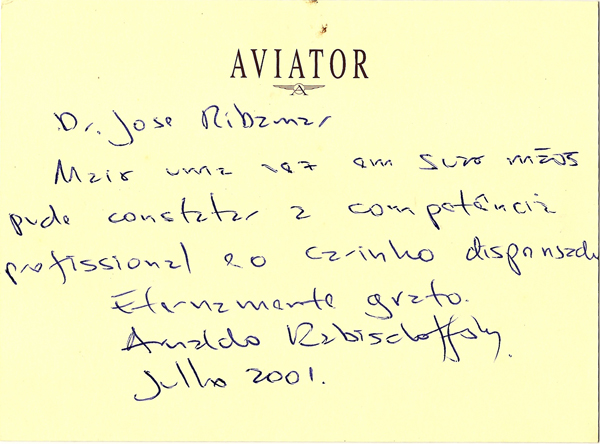 AVIATOR
A
Dr. Jose Ribamar
Mais uma vez em suas mãos
pude constatar a competência
profissional e o carinho dispensado
Eternamente grato.
Arnaldo
Julho 2001.